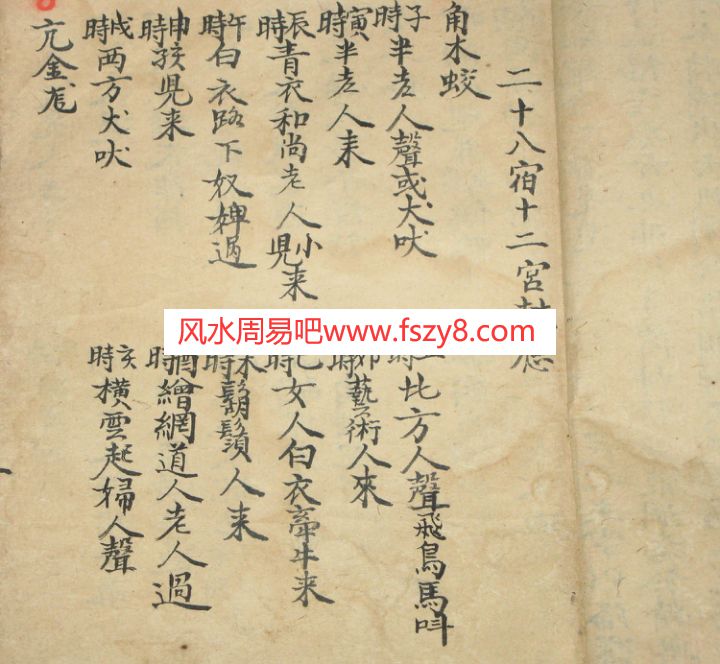 二十八宿十二宮
角木蛟
子時半老人聲或犬吠
時比方人聲飛鳥馬叫
寅時半老人来
卯時藝術人來
辰時青衣和尚老人小兒来
巳時女人白衣牽牛来
午時白衣路下奴婢過
未時鬍鬚人来
申時孩兒来
酉時繒網道人老人過
戌時两方犬吠
亥時橫雲起婦人聲
亢金龙
风水周易吧www.fszy8.com